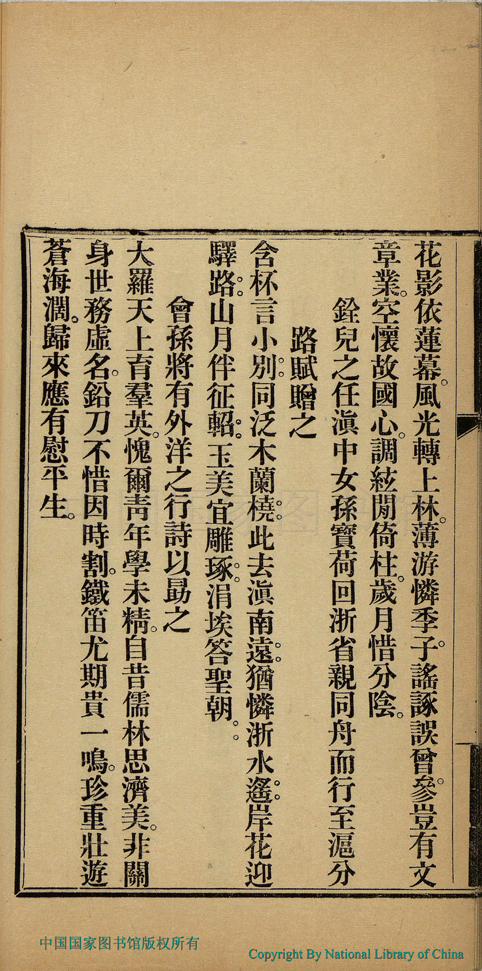 花影依蓮幕。風光轉上林。薄游憐季子。謠諑誤曾參。豈有文
章業。空懷故國心。調絃閒倚柱。歲月惜分陰。
銓兒之任滇中女孫寶荷回浙省親同舟而行至滬分
路賦贈之
含杯言小別。同泛木蘭橈。此去滇南遠。猶憐浙水遙。岸花迎
驛路。山月伴征軺。玉美宜雕琢。涓埃答聖朝。
會孫將有外洋之行詩以勗之
大羅天上育羣英。愧爾靑年學未精。自昔儒林思濟美。非關
身世務虛名。鉛刀不惜因時割。鐵笛尤期貴一鳴。珍重壯遊
蒼海濶。歸來應有慰平生。
中国国家图书馆版权所有
Copyright By National Library of China